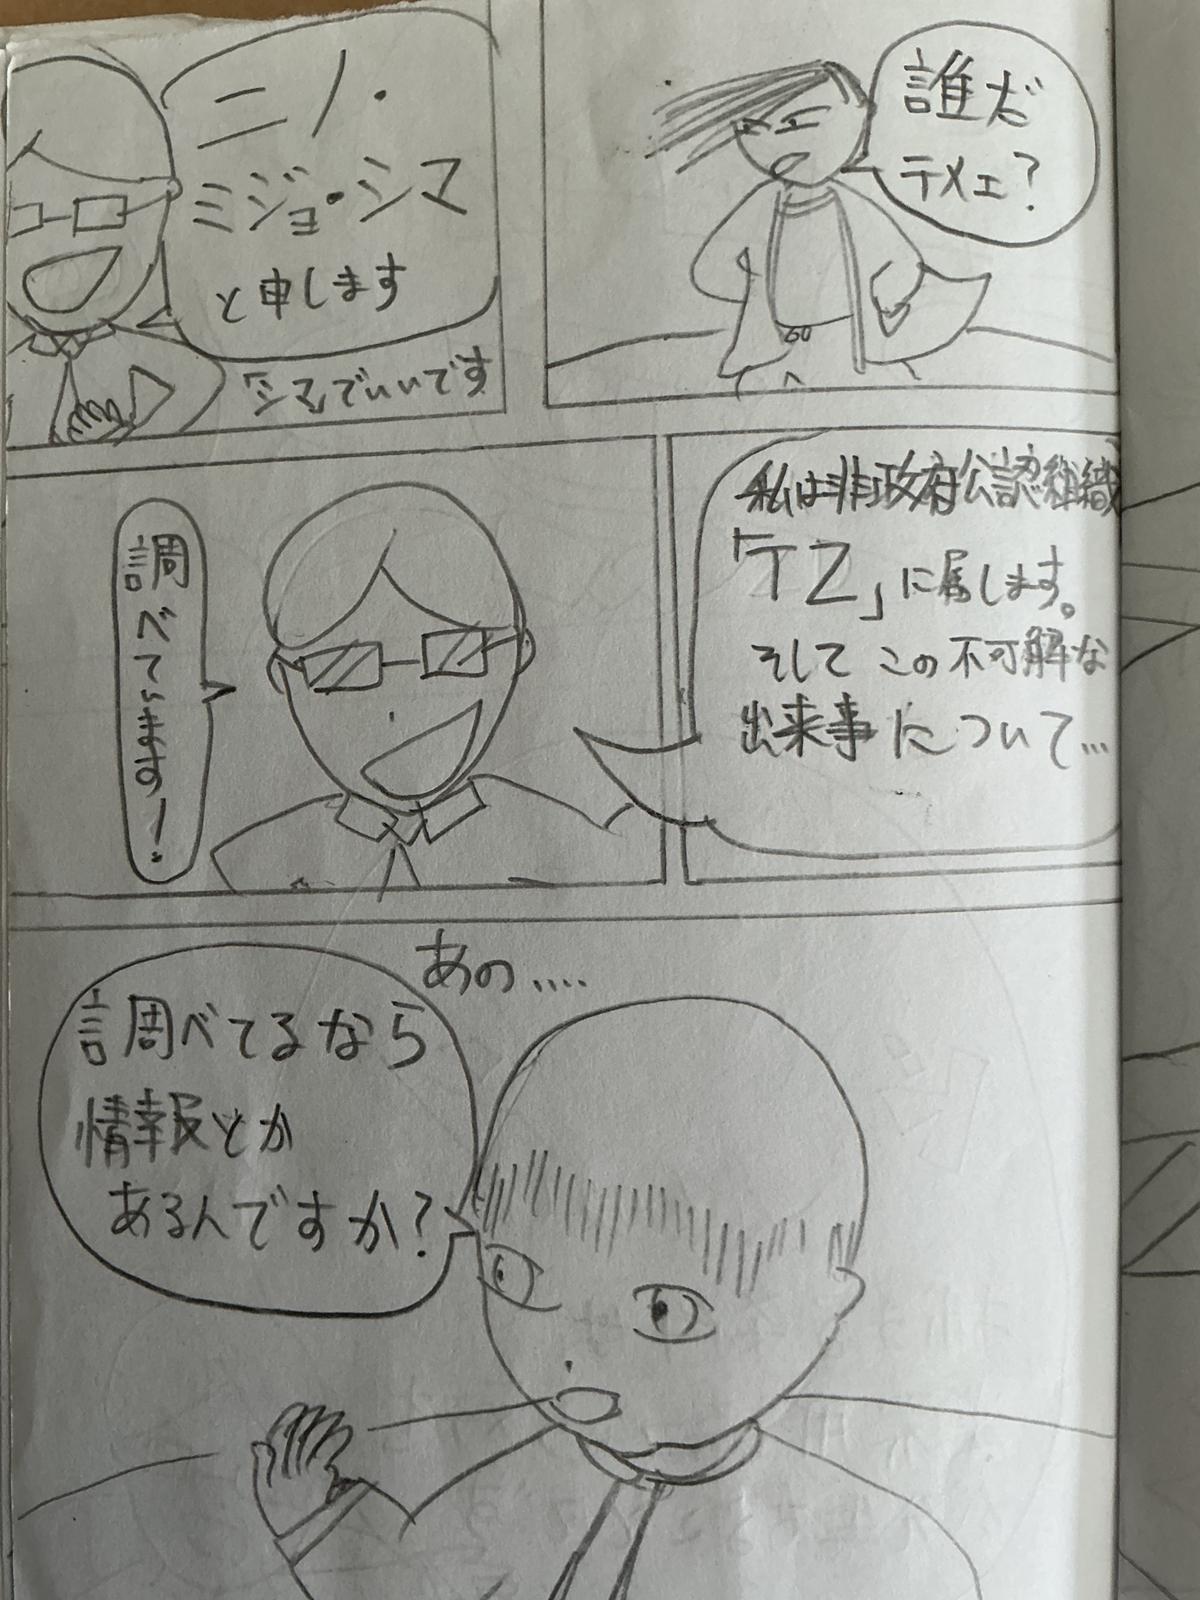 誰だ
テメェ?
ニノ・
ミジョ・シマ
と申します
「シマ」でいいです
私は非政府公認組織
「TZ」に属します。
そして この不可解な
出来事について…
調べています!
あの....
調べてるなら
情報とか
あるんですか?